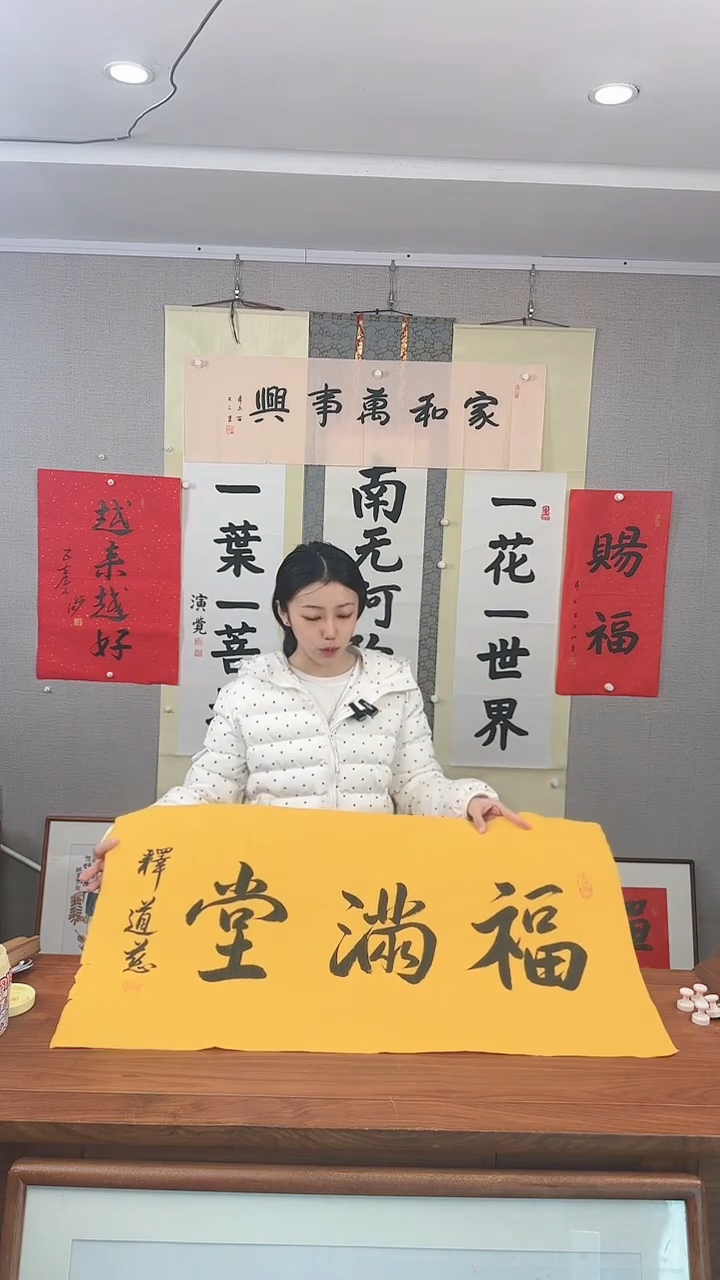 家和萬事興
南无阿
一花一世界
一葉一菩
演覺
賜福
越来越好
福滿堂
釋道慈